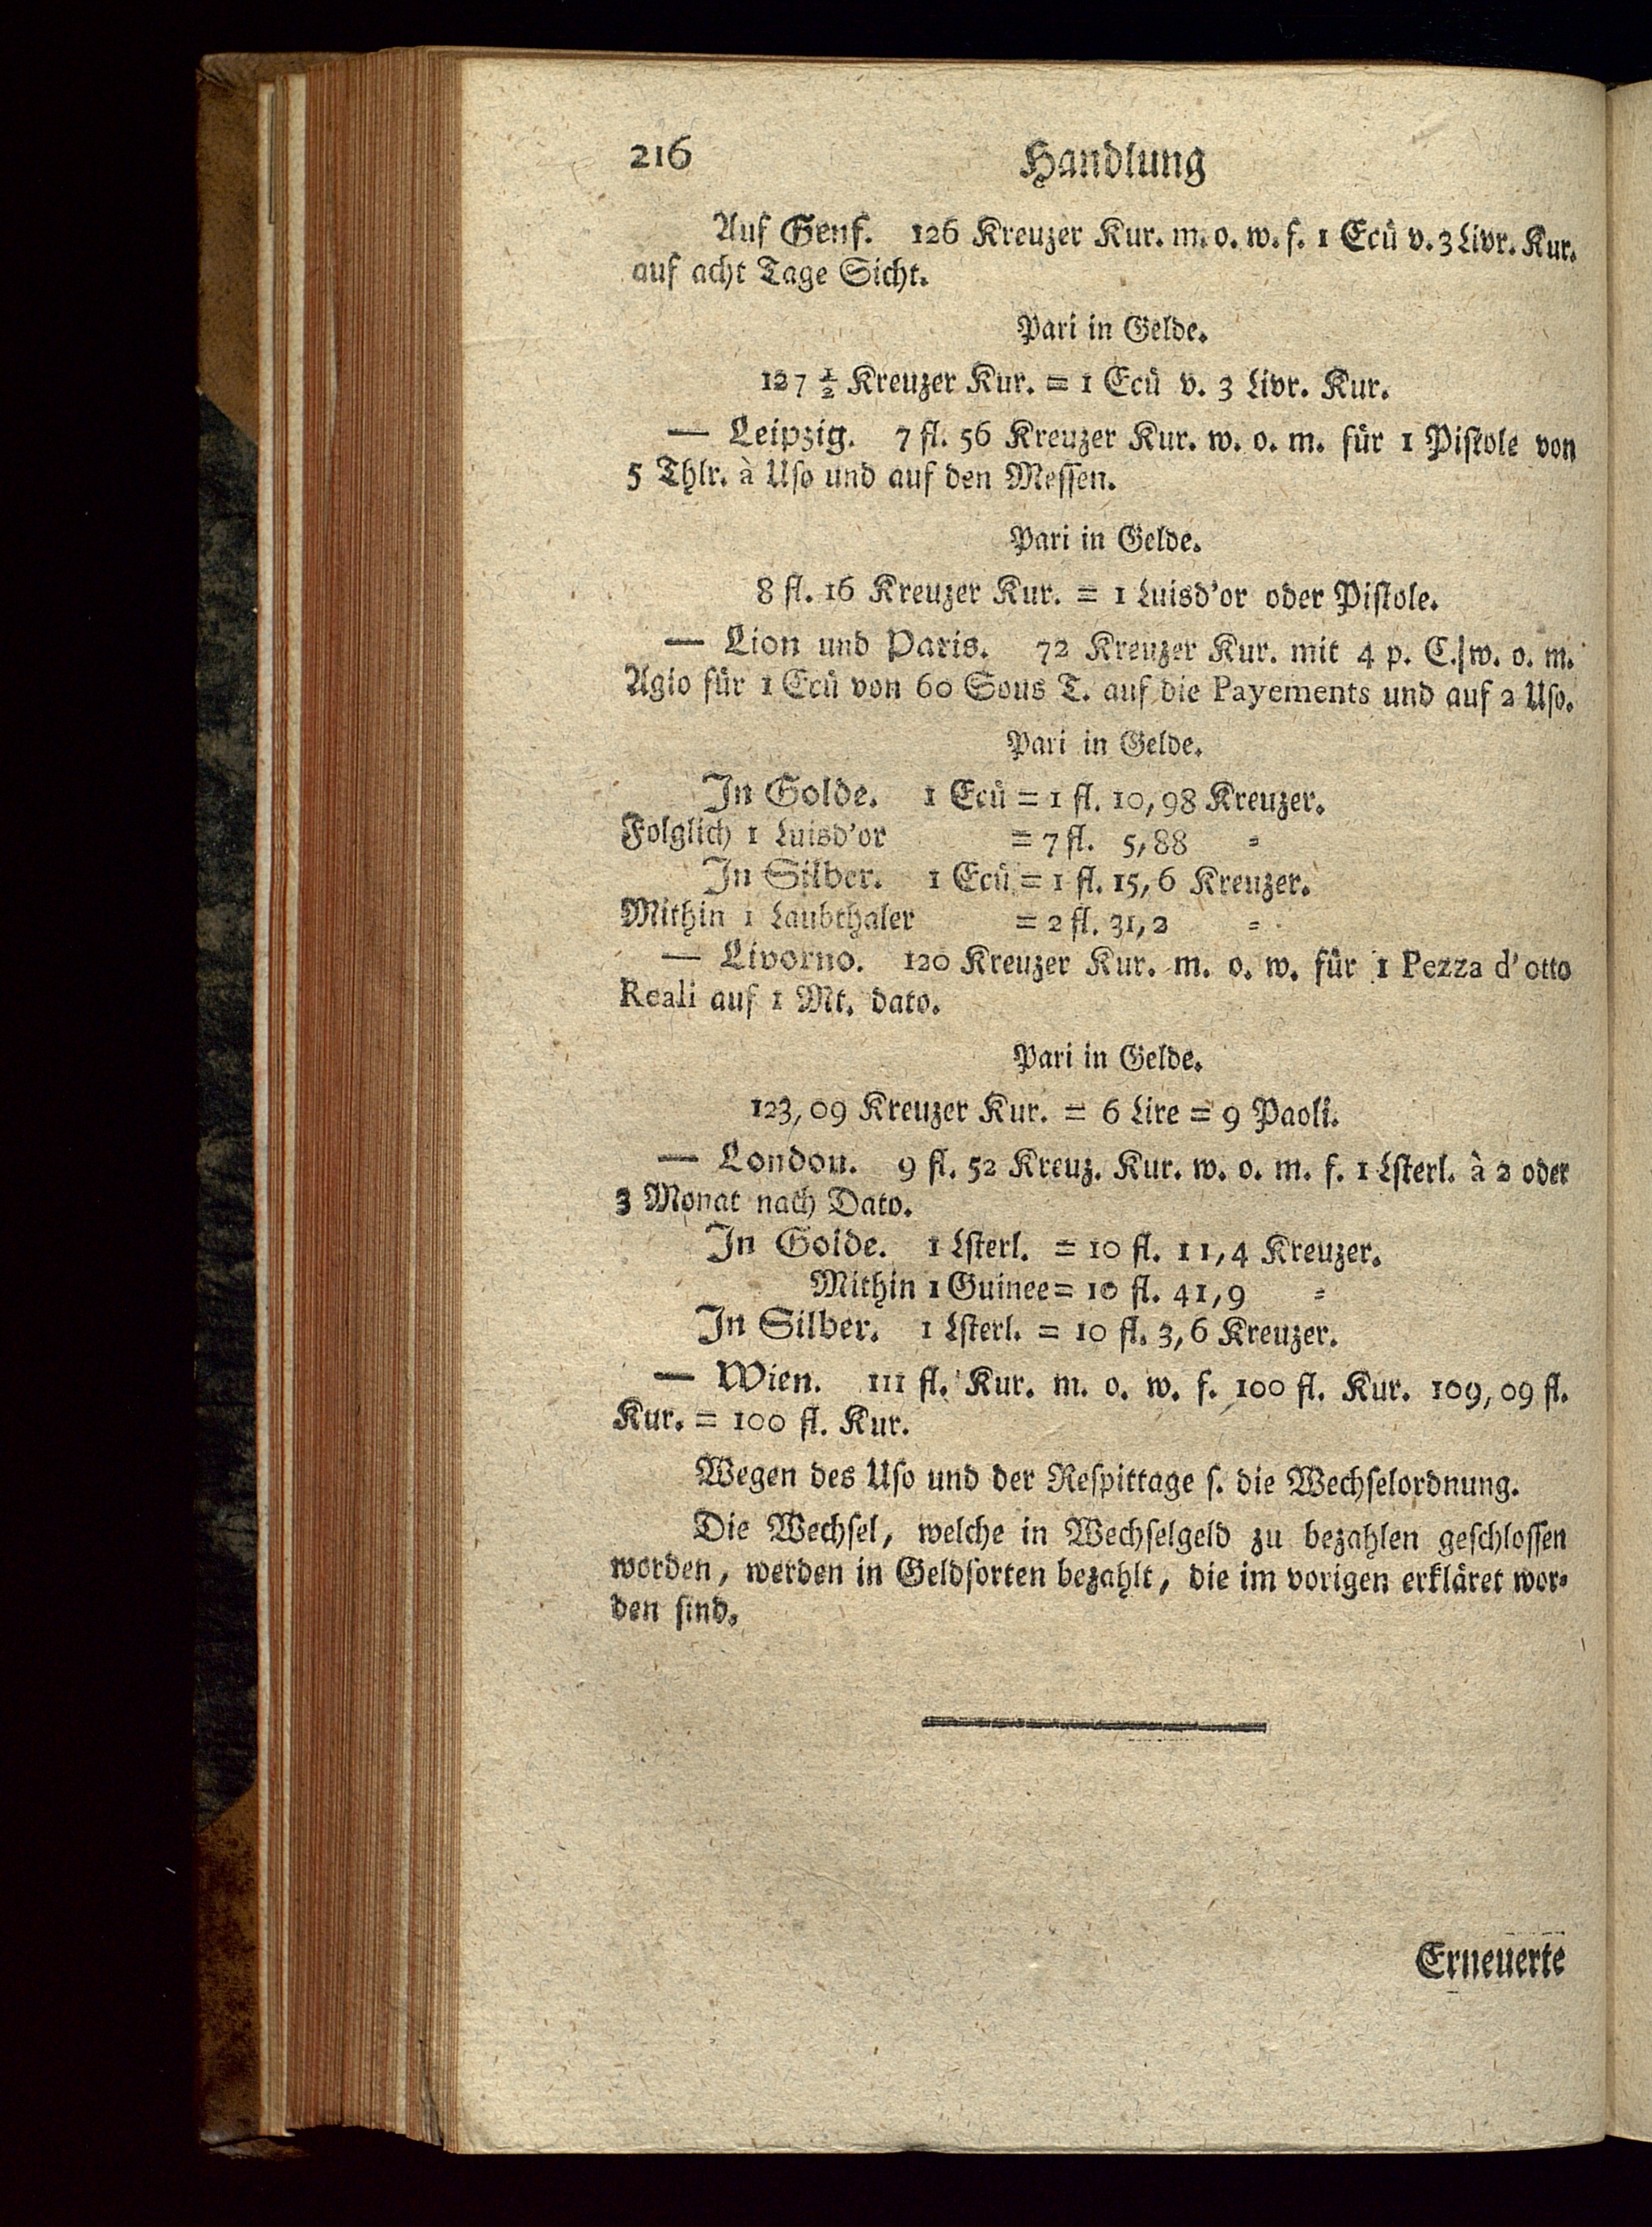 216 Handlung
Auf Genf. 126 Kreuzer Kur. m. o. w. f. 1 Ecü v. 3 Livr. Kur.
auf acht Tage Sicht.
Pari in Gelde.
127 1/2 Kreuzer Kur. = 1 Ecü v. 3 Livr. Kur.
— Leipzig. 7 fl. 56 Kreuzer Kur. w. o. m. für 1 Pistole von
5 Thlr. à Uso und auf den Messen.
Pari in Gelde.
8 fl. 16 Kreuzer Kur. = 1 Luisd'or oder Pistole.
— Lion und Paris. 72 Kreuzer Kur. mit 4 p. C. w. o. m.
Agio für 1 Ecü von 60 Sous T. auf die Payements und auf 2 Uso.
Pari in Gelde.
In Golde. 1 Ecü = 1 fl. 10,98 Kreuzer.
Folglich 1 Luisd'or = 7 fl. 5,88 =
In Silber. 1 Ecü = 1 fl. 15,6 Kreuzer.
Mithin 1 Laubthaler = 2 fl. 31,2 =
— Livorno. 120 Kreuzer Kur. m. o. w. für 1 Pezza d'otto
Reali auf 1 Mt. dato.
Pari in Gelde.
123,09 Kreuzer Kur. = 6 Lire = 9 Paoli.
— London. 9 fl. 52 Kreuz. Kur. w. o. m. f. 1 Lsterl. à 2 oder
3 Monat nach Dato.
In Golde. 1 Lsterl. = 10 fl. 11,4 Kreuzer.
Mithin 1 Guinee = 10 fl. 41,9 =
In Silber. 1 Lsterl. = 10 fl. 3,6 Kreuzer.
— Wien. 111 fl. Kur. m. o. w. f. 100 fl. Kur. 109,09 fl.
Kur. = 100 fl. Kur.
Wegen des Uso und der Respittage s. die Wechselordnung.
Die Wechsel, welche in Wechselgeld zu bezahlen geschlossen
worden, werden in Geldsorten bezahlt, die im vorigen erkläret wor=
den sind.
Erneuerte